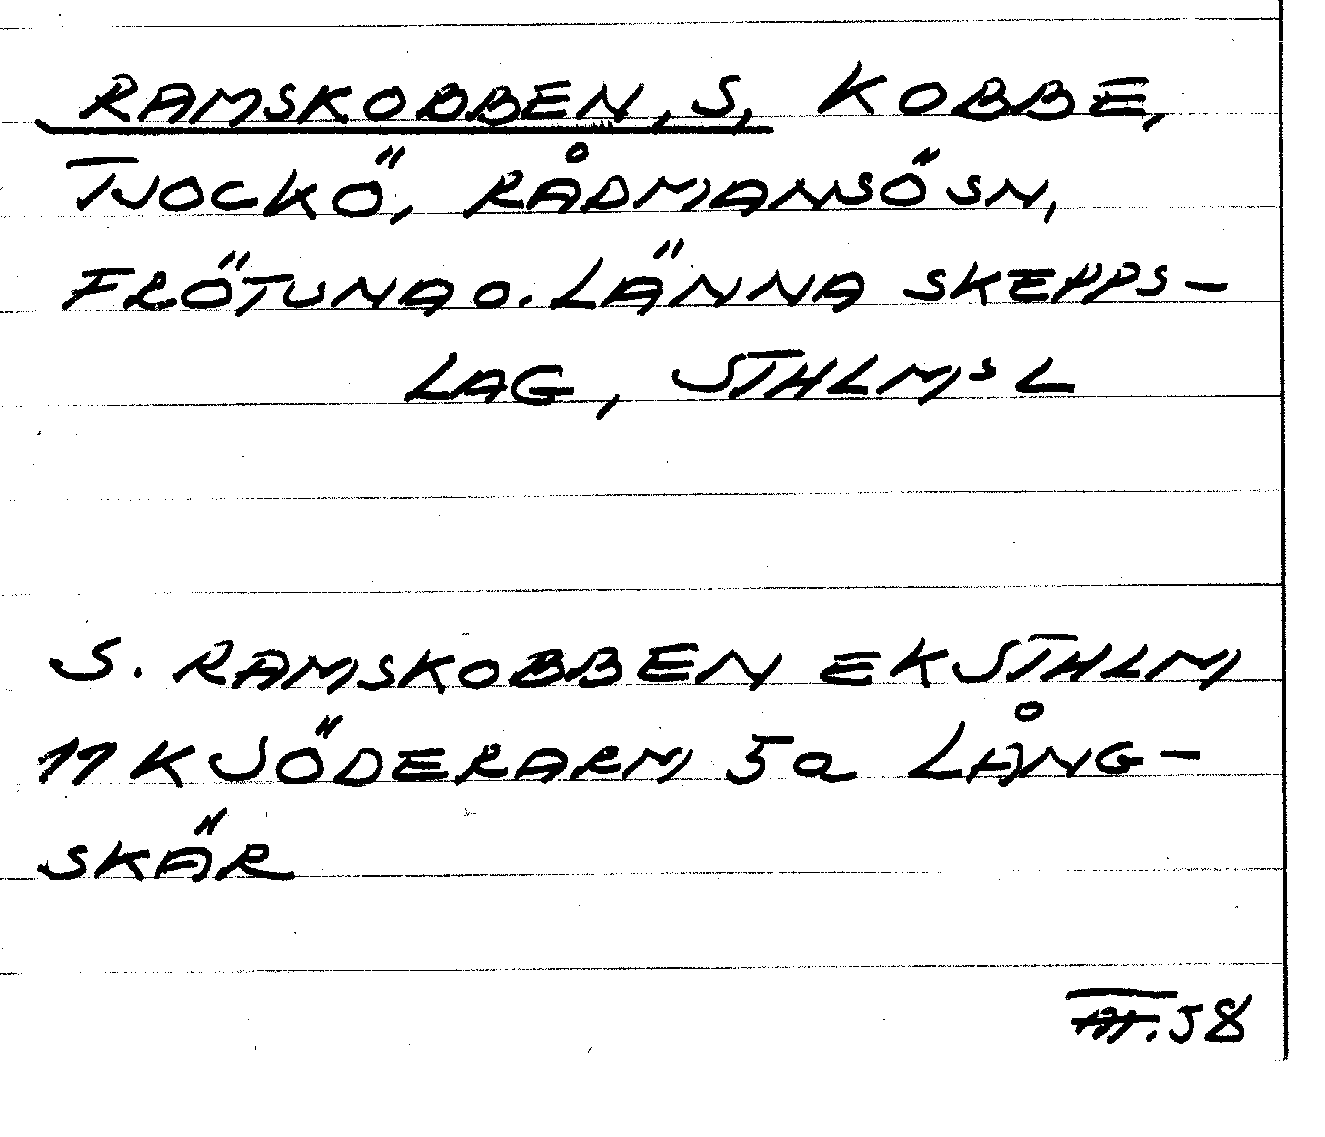 RAMSKOBBEN, S, KOBBE,
TJOCKÖ, RÅDMANSÖ SN,
FRÖTUNA O. LÄNNA SKEPPS-
LAG, STHLMS L
S. RAMSKOBBEN EKSTHLM
11K SÖDERARM 5a LÅNG-
SKÄR
58